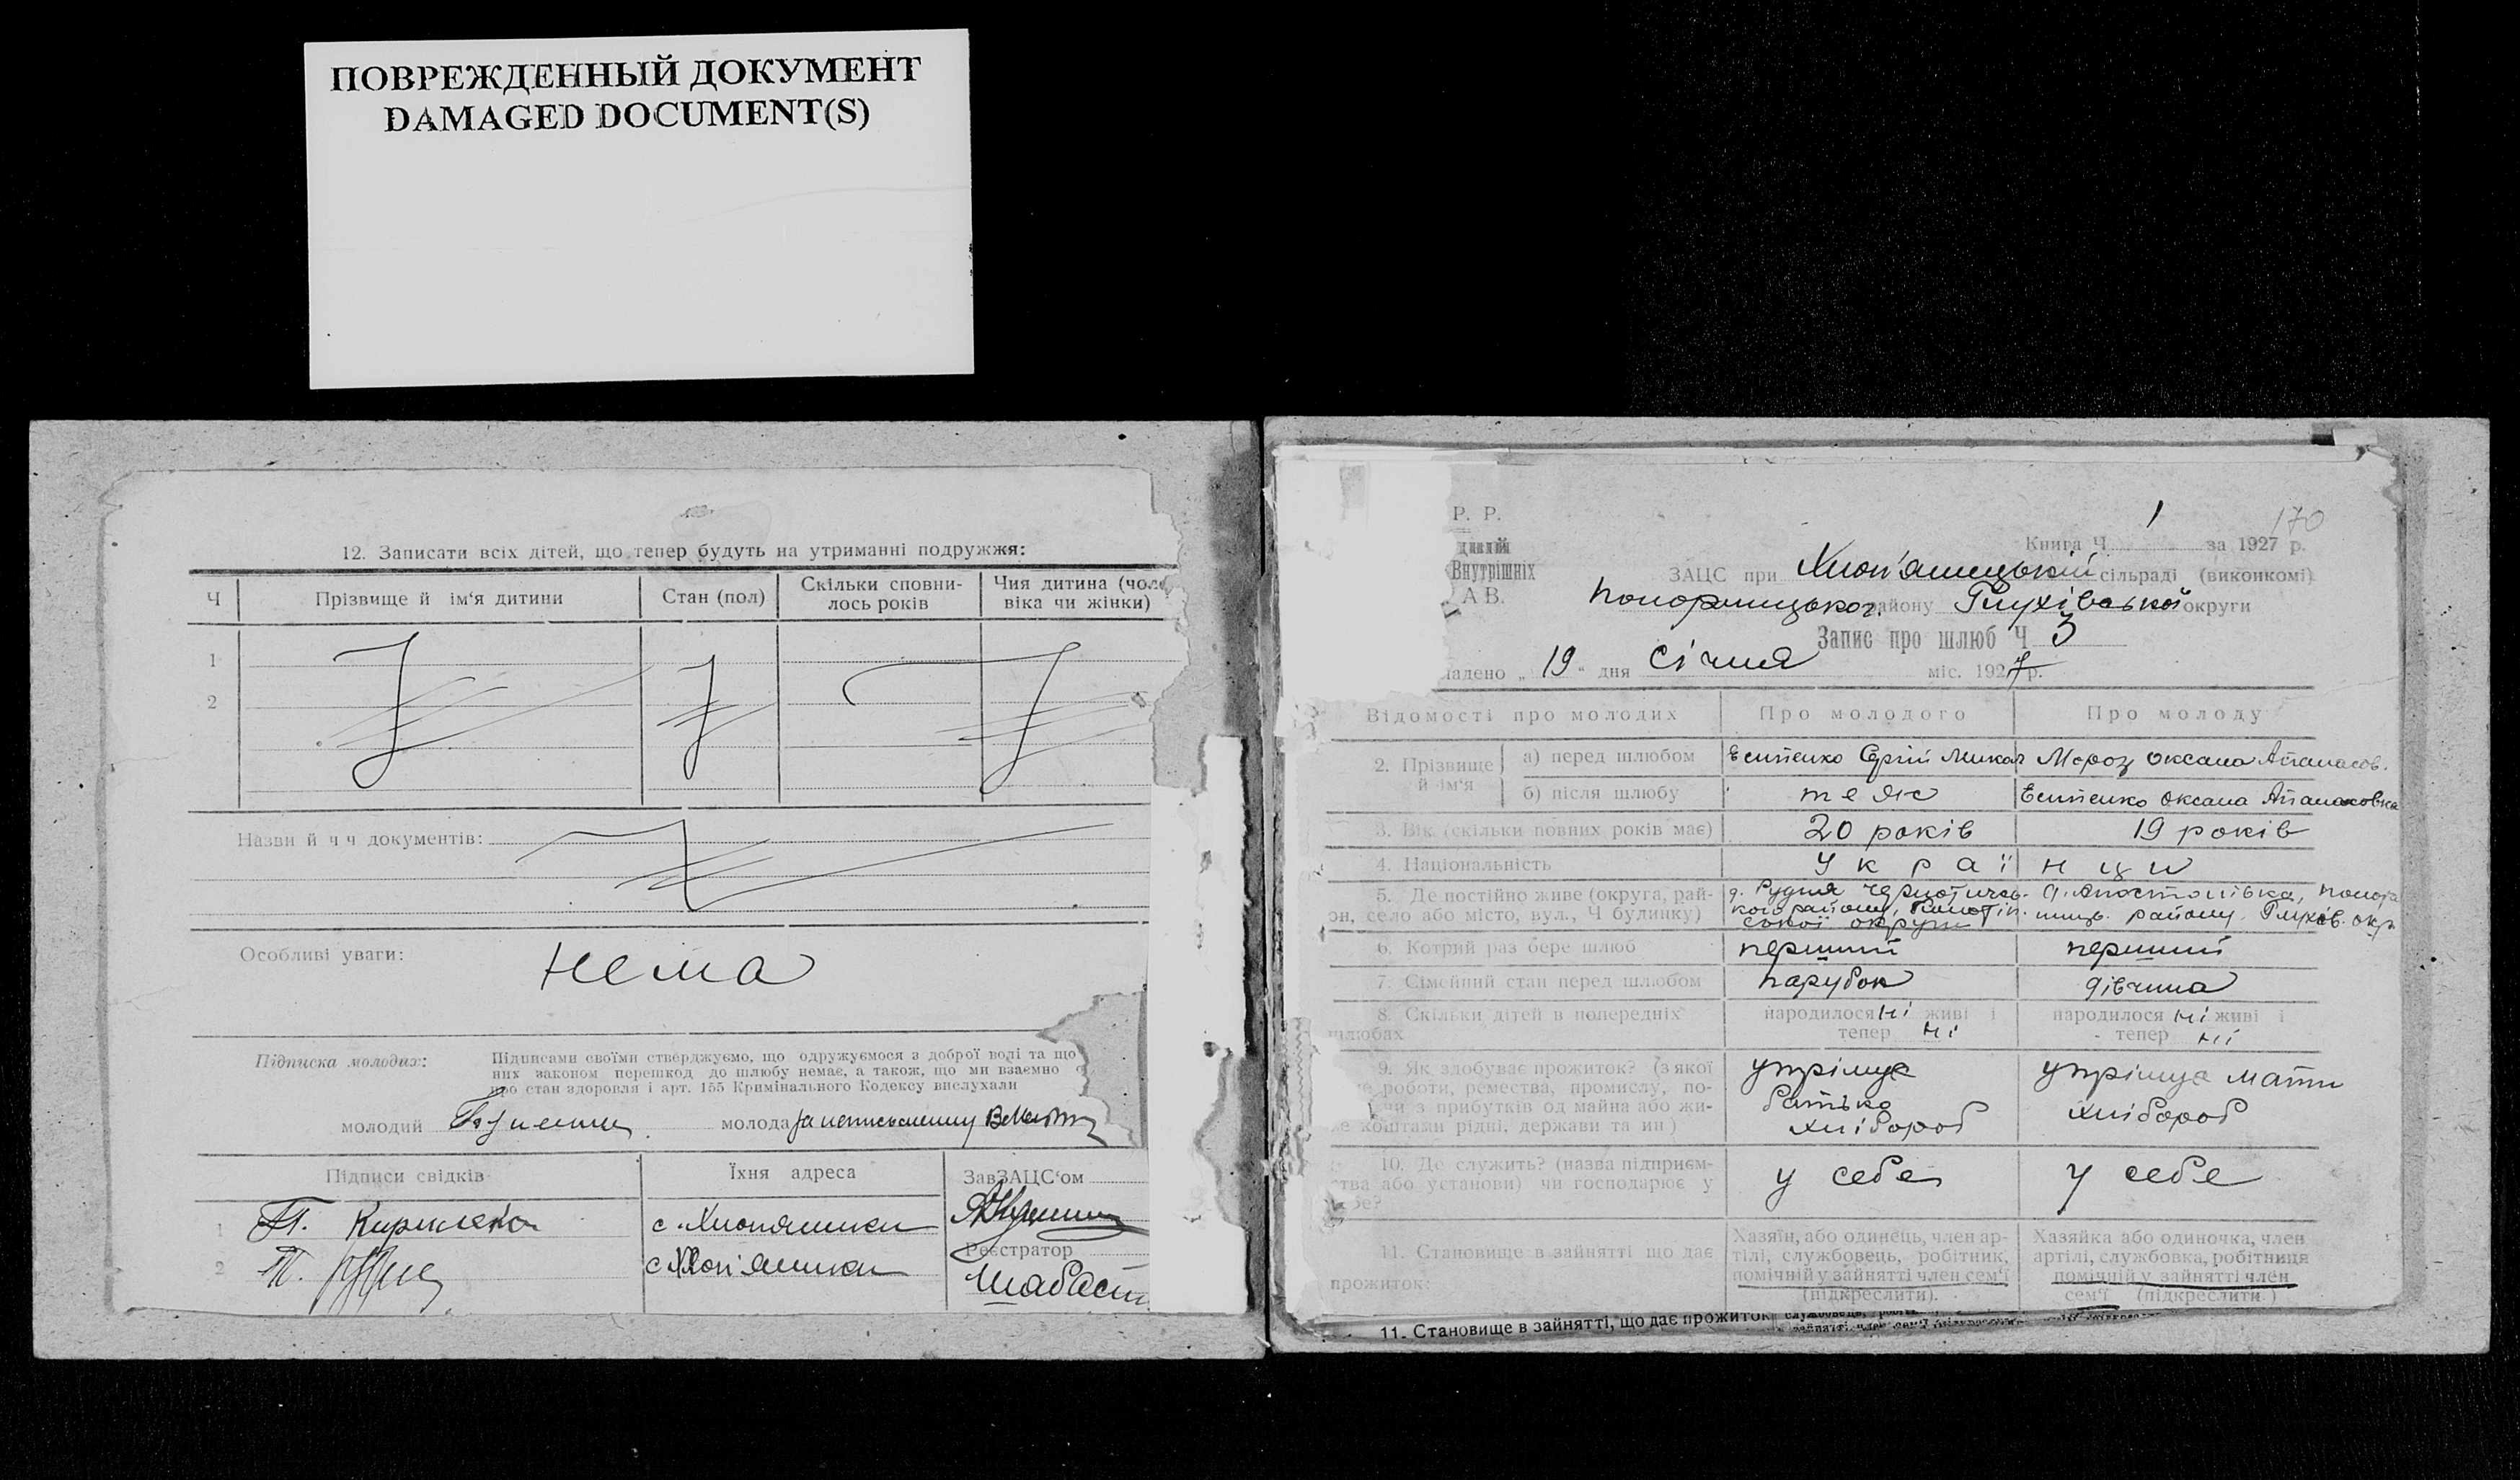 ПОВРЕЖДЕННЫЙ ДОКУМЕНТ
DAMAGED DOCUMENT(S)
12. Записати всіх дітей, що тепер будуть на утриманні подружжя:
Ч
Прізвище й ім'я дитини
Стан (пол)
Скільки сповни-
лось років
Чия дитина (чоло
віка чи жінки)
1
2
Назви й ч ч документів:
Особливі уваги: нема
Підписка молодих:
Підписами своїми стверджуємо, що одружуємося з доброї волі та що
них законом перешкод до шлюбу немає, а також, що ми взаємно
про стан здоров'я і арт. 155 Кримінального Кодексу вислухали
молодий
молода за неписьменну
Підписи свідків
Їхня адреса
ЗавЗАЦС'ом
1
с. Хлопяники
Реєстратор
2
с. Хлоп'яники
Р. Р.
Внутрішніх
АВ.
1
170
Книга Ч за 1927 р.
ЗАЦС при Хлоп'яницькій сільраді (виконкомі)
Понорницьког. району Глухівської округи
Запис про шлюб Ч 3
ладено „19" дня Січня міс. 1927 р.
Відомості про молодих
Про молодого
Про молоду
2. Прізвище
й ім'я
а) перед шлюбом
Есипенко Сергій Микол
Мороз Оксана Апанасов.
б) після шлюбу
теж
Есипенко Оксана Апанасовна
3. Вік (скільки повних років має)
20 років
19 років
4. Національність
Українци
5. Де постійно живе (округа, рай-
он, село або місто, вул., Ч будинку)
д. Рудня
кого району, Конотіп.
ської округи
д. Апостолівка, Понор
ницьк. району Глухів. окр.
6. Котрий раз бере шлюб
перший
перший
7. Сімейний стан перед шлюбом
парубок
дівчина
8. Скільки дітей в попередніх
шлюбах
народилося ні живі і
тепер ні
народилося ні живі і
тепер ні
9. Як здобуває прожиток? (з якої
роботи, ремества, промислу, по-
чи з прибутків од майна або жи-
коштами рідні, держави та ин)
утрімує
батько
хлібороб
утрімує мати
хлібороб
10. Де служить? (назва підприєм-
ства або установи) чи господарює у
себе?
у себе
у себе
11. Становище в зайнятті що дає
прожиток:
Хазяїн, або одинець, член ар-
тілі, службовець, робітник,
помічній у зайнятті член сем'ї
(підкреслити).
Хазяйка або одиночка, член
артілі, службовка, робітниця
помічній у зайнятті член
сем'ї (підкреслити)
11. Становище в зайнятті, що дає прожиток